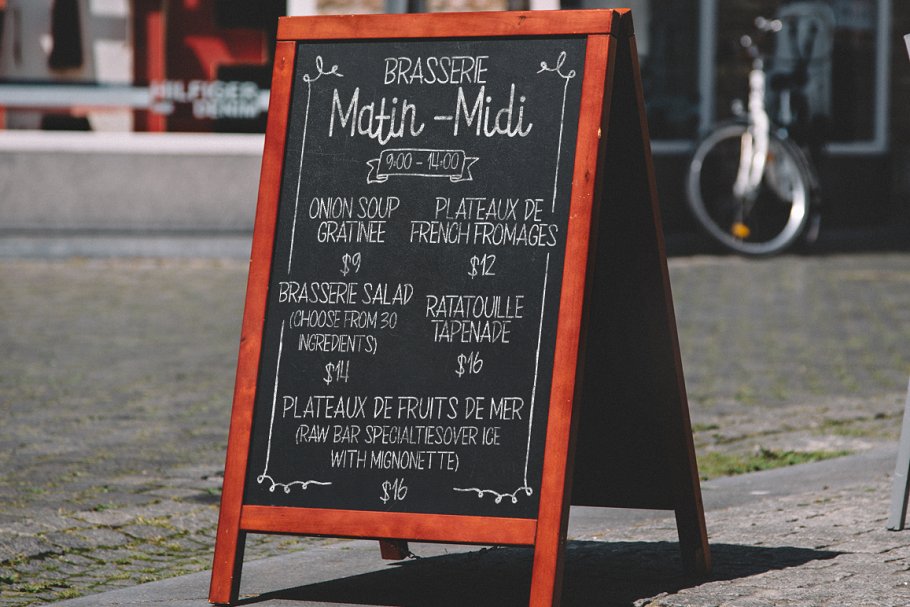 HILFIGER
DENIM
BRASSERIE
Matin - Midi
9:00 - 14:00
ONION SOUP
GRATINEE
$9
PLATEAUX DE
FRENCH FROMAGES
$12
BRASSERIE SALAD
(CHOOSE FROM 30
INGREDIENTS)
$14
RATATOUILLE
TAPENADE
$16
PLATEAUX DE FRUITS DE MER
(RAW BAR SPECIALTIESOVER ICE
WITH MIGNONETTE)
$16